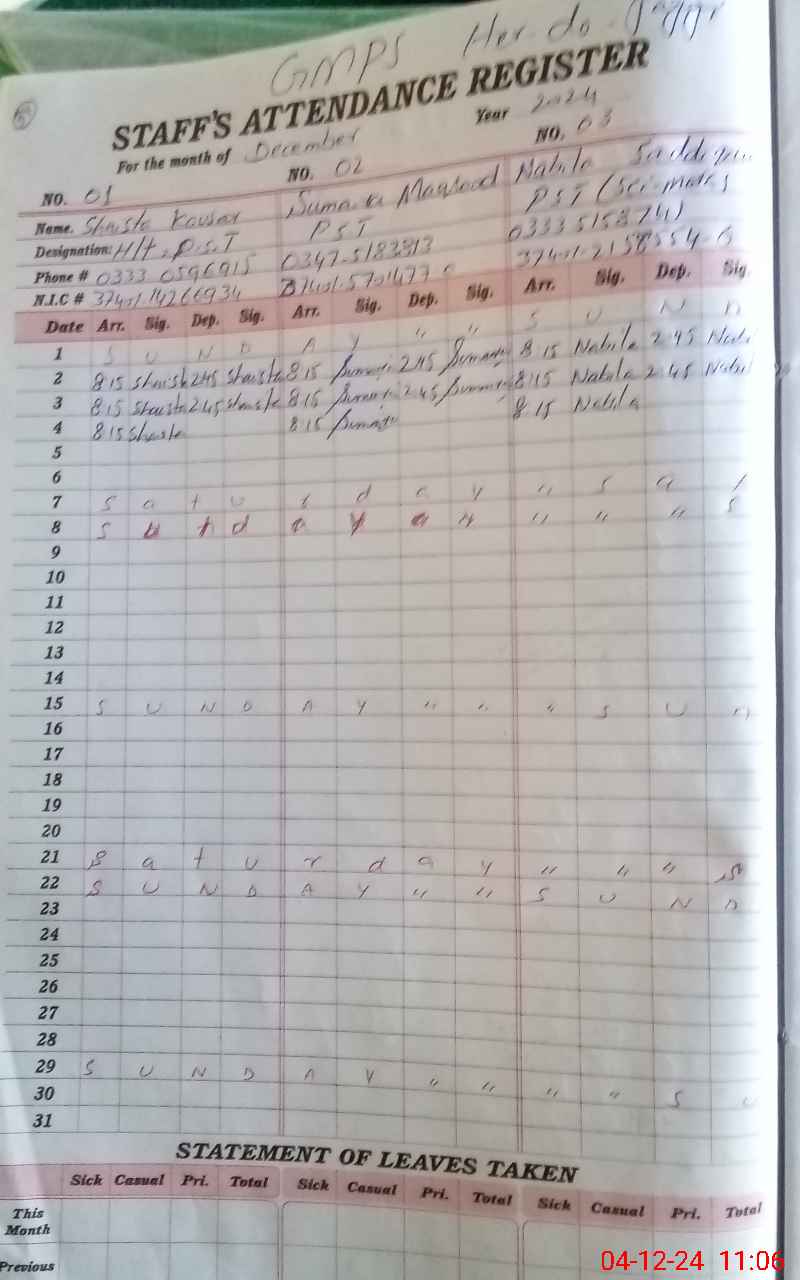 GMPS Her do
STAFF'S ATTENDANCE REGISTER
For the month of December Year 2024
NO. 01 NO. 02 NO. 03
Name. Shaista Kousar Sumaira Maqsood Nabila
Designation: H/t, P.S.T PST PST
Phone # 0333 0596915 0347-5183813
N.I.C #
Date Arr. Sig. Dep. Sig. Arr. Sig. Dep. Sig. Arr. Sig. Dep. Sig.
1 S U N D A Y " " S U N D
2 8 15 Shaista 2 45 Shaista 8 15 Sumaira 2 45 Sumaira 8 15 Nabila 2 45 Nabi
3 8 15 Shaista 2 45 Shaista 8 15 Sumaira 2 45 Sumaira 8 15 Nabila 2 45 Nabi
4 8 15 Shaista 8 15 Sumaira 8 15 Nabila
5
6
7 S a t u r d a y " S a t
8 S u n d a y " " " " " S
9
10
11
12
13
14
15 S U N D A Y " " " S U n
16
17
18
19
20
21 S a t u r d a y " " " S
22 S U N D A Y " " S U N D
23
24
25
26
27
28
29 S U N D A Y " " " " S U
30
31
STATEMENT OF LEAVES TAKEN
Sick Casual Pri. Total Sick Casual Pri. Total Sick Casual Pri. Total
This
Month
Previous
04-12-24 11:06